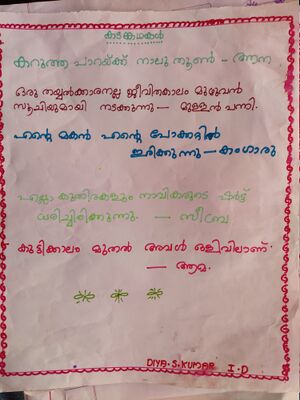 കടങ്കഥകൾ
കറുത്ത പാറയ്ക്ക് നാലു തൂൺ - ആന
ഒരു തയ്യൽക്കാരനല്ല ജീവിതകാലം മുഴുവൻ
സൂചിയുമായി നടക്കുന്നു — മുള്ളൻ പന്നി.
എന്റെ മകൻ എന്റെ പോക്കറ്റിൽ
ഇരിക്കുന്നു — കംഗാരു
എല്ലാ കുതിരകളും നാവികരുടെ ഷർട്ട്
ധരിച്ചിരിക്കുന്നു. — സീബ്ര
കുട്ടിക്കാലം മുതൽ അവൾ ഒളിവിലാണ്.
— ആമ.
DIYA.S.KUMAR I.D